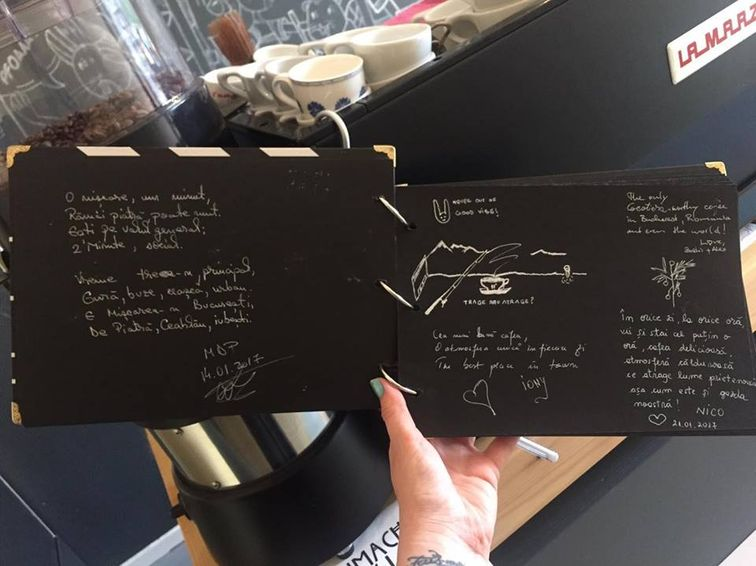 LA MARZ
O mișcare, un minut,
Rămâi piatră, poate mut.
Ești pe valul general,
2 Minute, social.
Vreme trece-n principal,
Gură, buze, ceașca, urban.
E Mișcarea-n București,
De Piatră, Ceahlău, iubești.
MDP
14.01.2017
NEVER OUT OF
GOOD VIBE!
TRAGE SAU ATRAGE?
Cea mai bună cafea,
O atmosferă unică în fiecare zi
The best place in town
The only
worthy coffee
in Bucharest, România
and even the world!
LOVE,
În orice zi, la orice oră
vii și stai cel puțin o
oră, cafea delicioasă
atmosferă călduroasă
ce strage lume prietenoasă
așa cum este și gazda
noastră!
NICO
21.01.2017